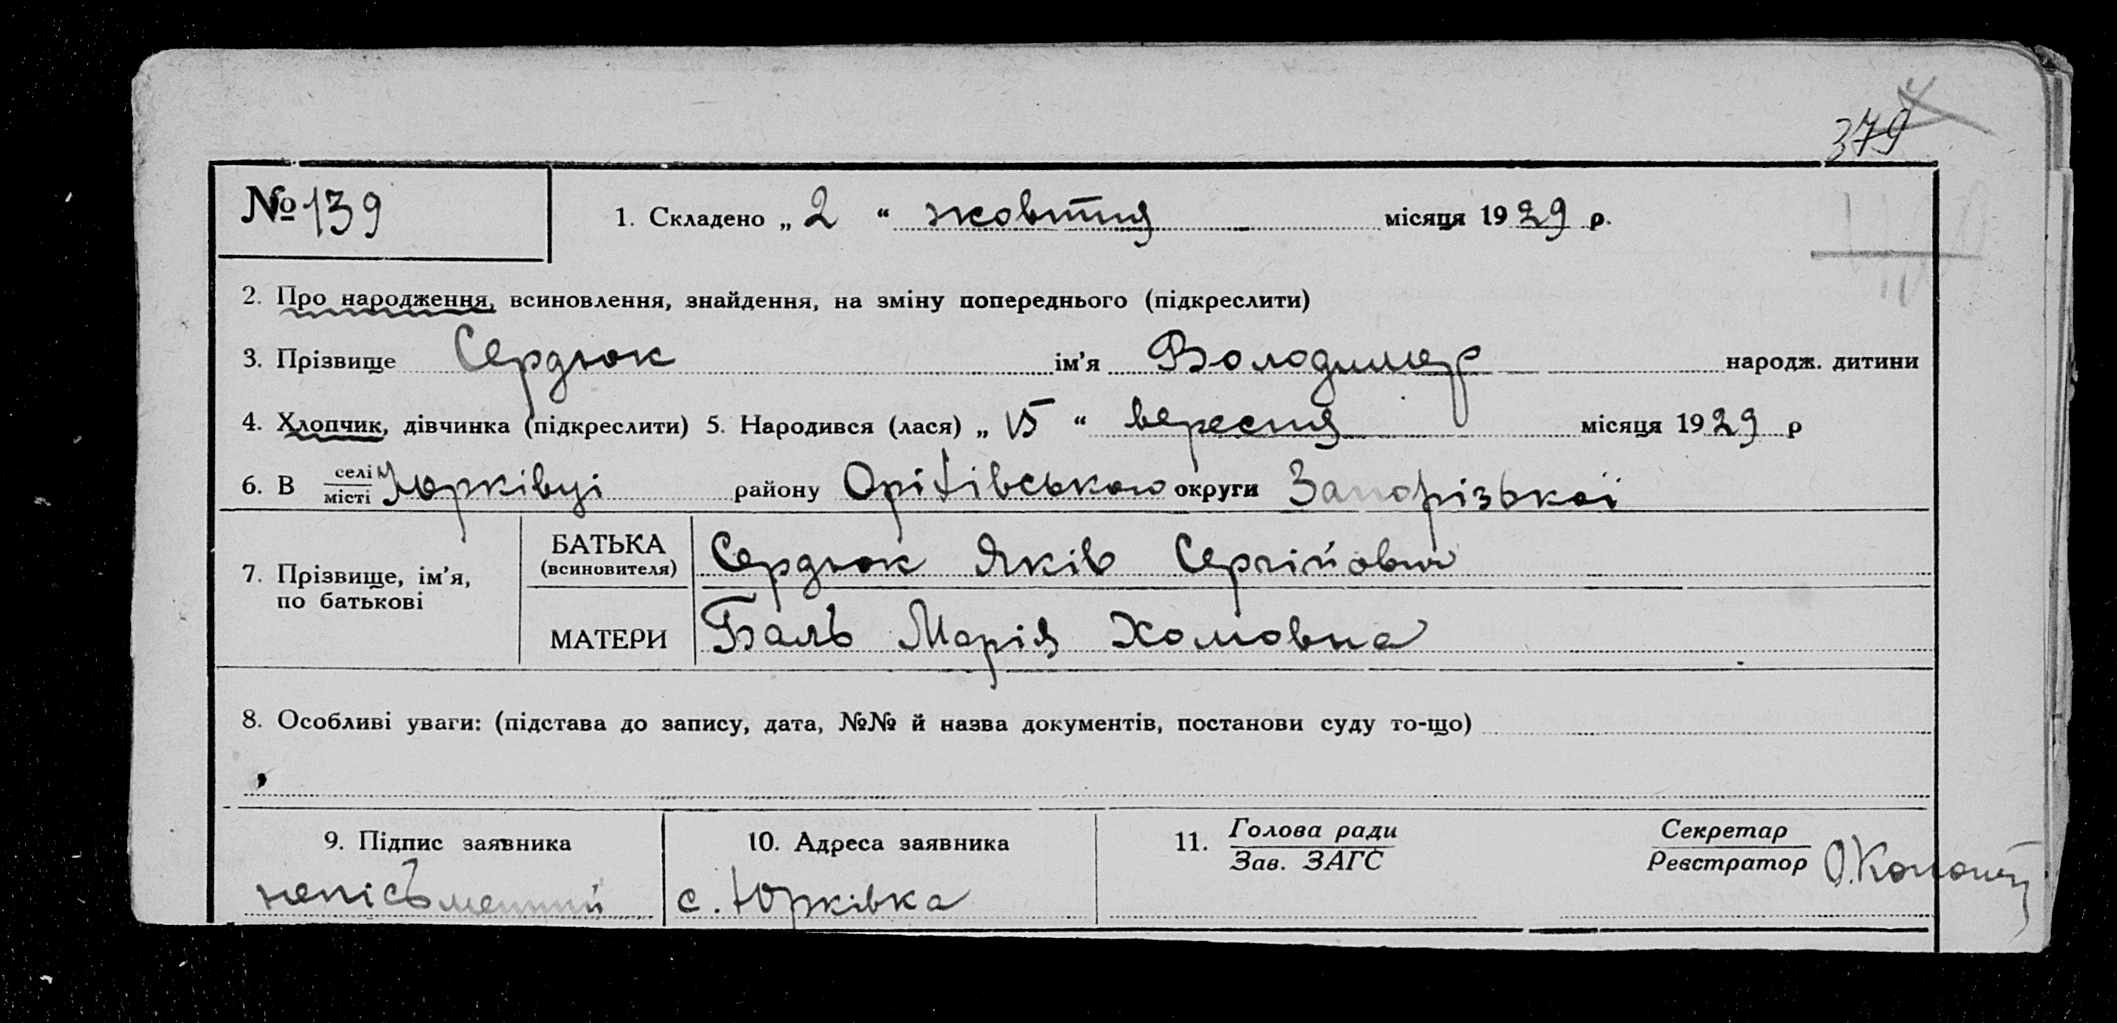 379
№ 139 1. Складено „ 2 “ жовтня місяця 1929 р.
2. Про народження, всиновлення, знайдення, на зміну попереднього (підкреслити)
3. Прізвище Сердюк ім’я Володимер народж. дитини
4. Хлопчик, дівчинка (підкреслити) 5. Народився (лася) „ 15 “ вересня місяця 1929 р
6. В селі місті Юрківці району Оріхівського округи Запорізької
7. Прізвище, ім’я, по батькові
БАТЬКА (всиновителя) Сердюк Яків Сергійович
МАТЕРИ Баль Марія Хомовна
8. Особливі уваги: (підстава до запису, дата, №№ й назва документів, постанови суду то-що)
9. Підпис заявника 10. Адреса заявника 11. Голова ради Зав. ЗАГС Секретар Реєстратор
непісьменний с. Юрківка